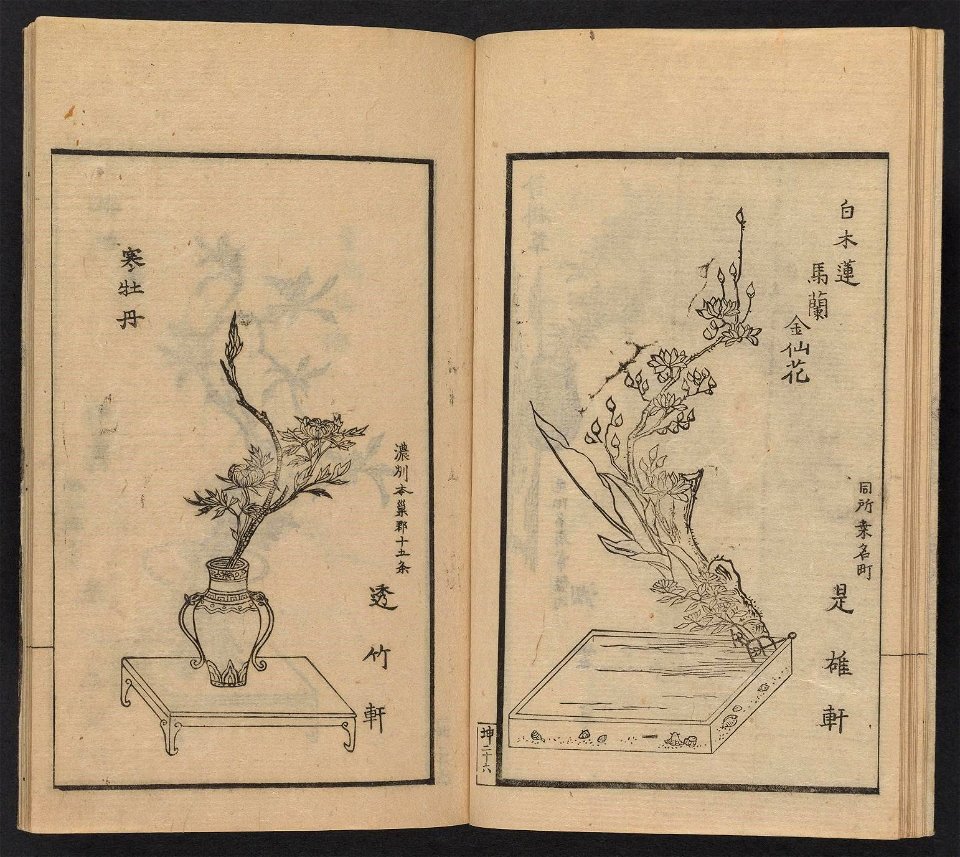 白木蓮
馬蘭
金仙花
同所桑名町
是雄軒
坤二十六
寒牡丹
濃州本巣郡十五条
透竹軒